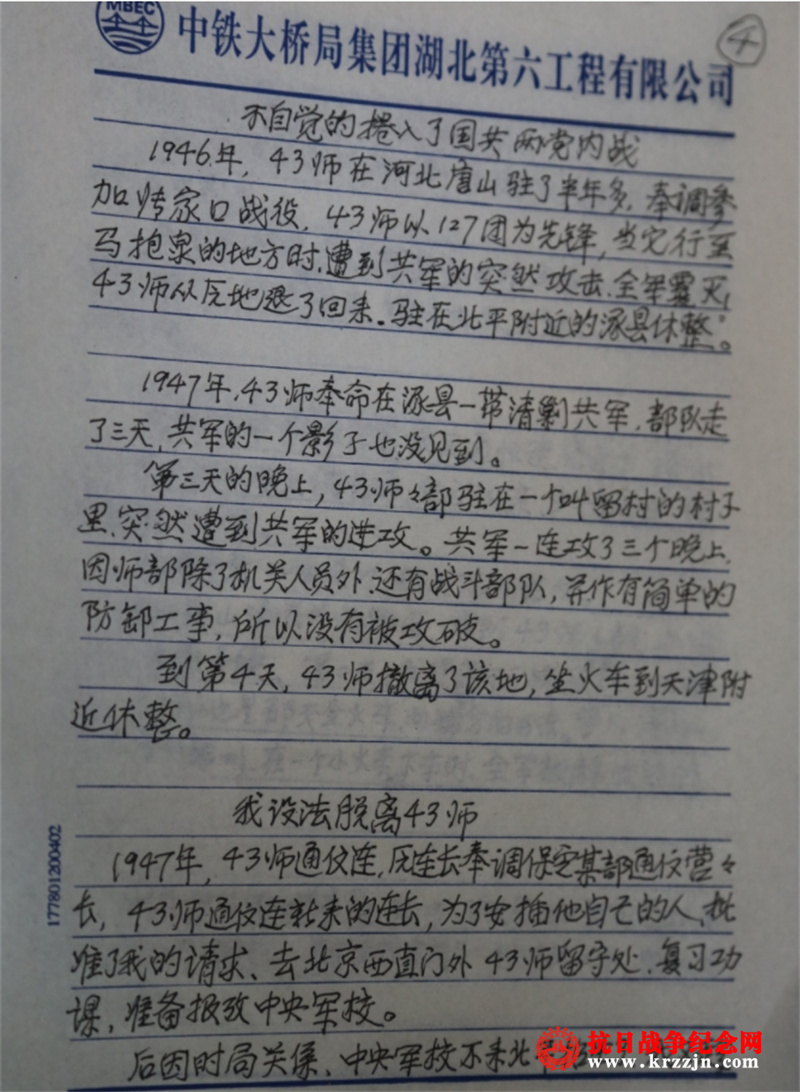 MBEC
中铁大桥局集团湖北第六工程有限公司
4
不自觉的捲入了国共两党内战
1946年,43师在河北唐山驻了半年多,奉调参
加张家口战役,43师以127团为先锋,当它行至
马抱泉的地方时,遭到共军的突然攻击,全军覆灭,
43师从原地退了回来。驻在北平附近的涿县休整。
1947年,43师奉命在涿县一带清剿共军,部队走
了三天,共军的一个影子也没见到。
第三天的晚上,43师々部驻在一个叫留村的村子
里,突然遭到共军的进攻。共军一连攻了三个晚上,
因师部除了机关人员外,还有战斗部队,并作有简单的
防卸工事,所以没有被攻破。
到第4天,43师撤离了该地,坐火车到天津附
近休整。
我设法脱离43师
1947年,43师通仪连,原连长奉调保定某部通仪营々
长,43师通仪连新来的连长,为了安插他自己的人,批
准了我的请求、去北京西直门外43师留守处,复习功
课,准备报攷中央军校。
后因时局关系,中央军校不来北
177801200402
抗日战争纪念网
www.krzzjn.com